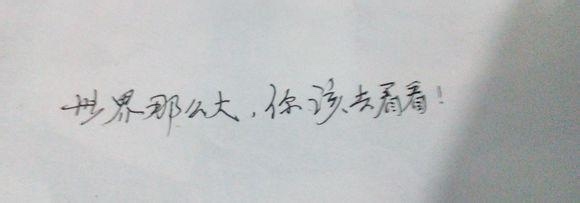 世界那么大,你该去看看!